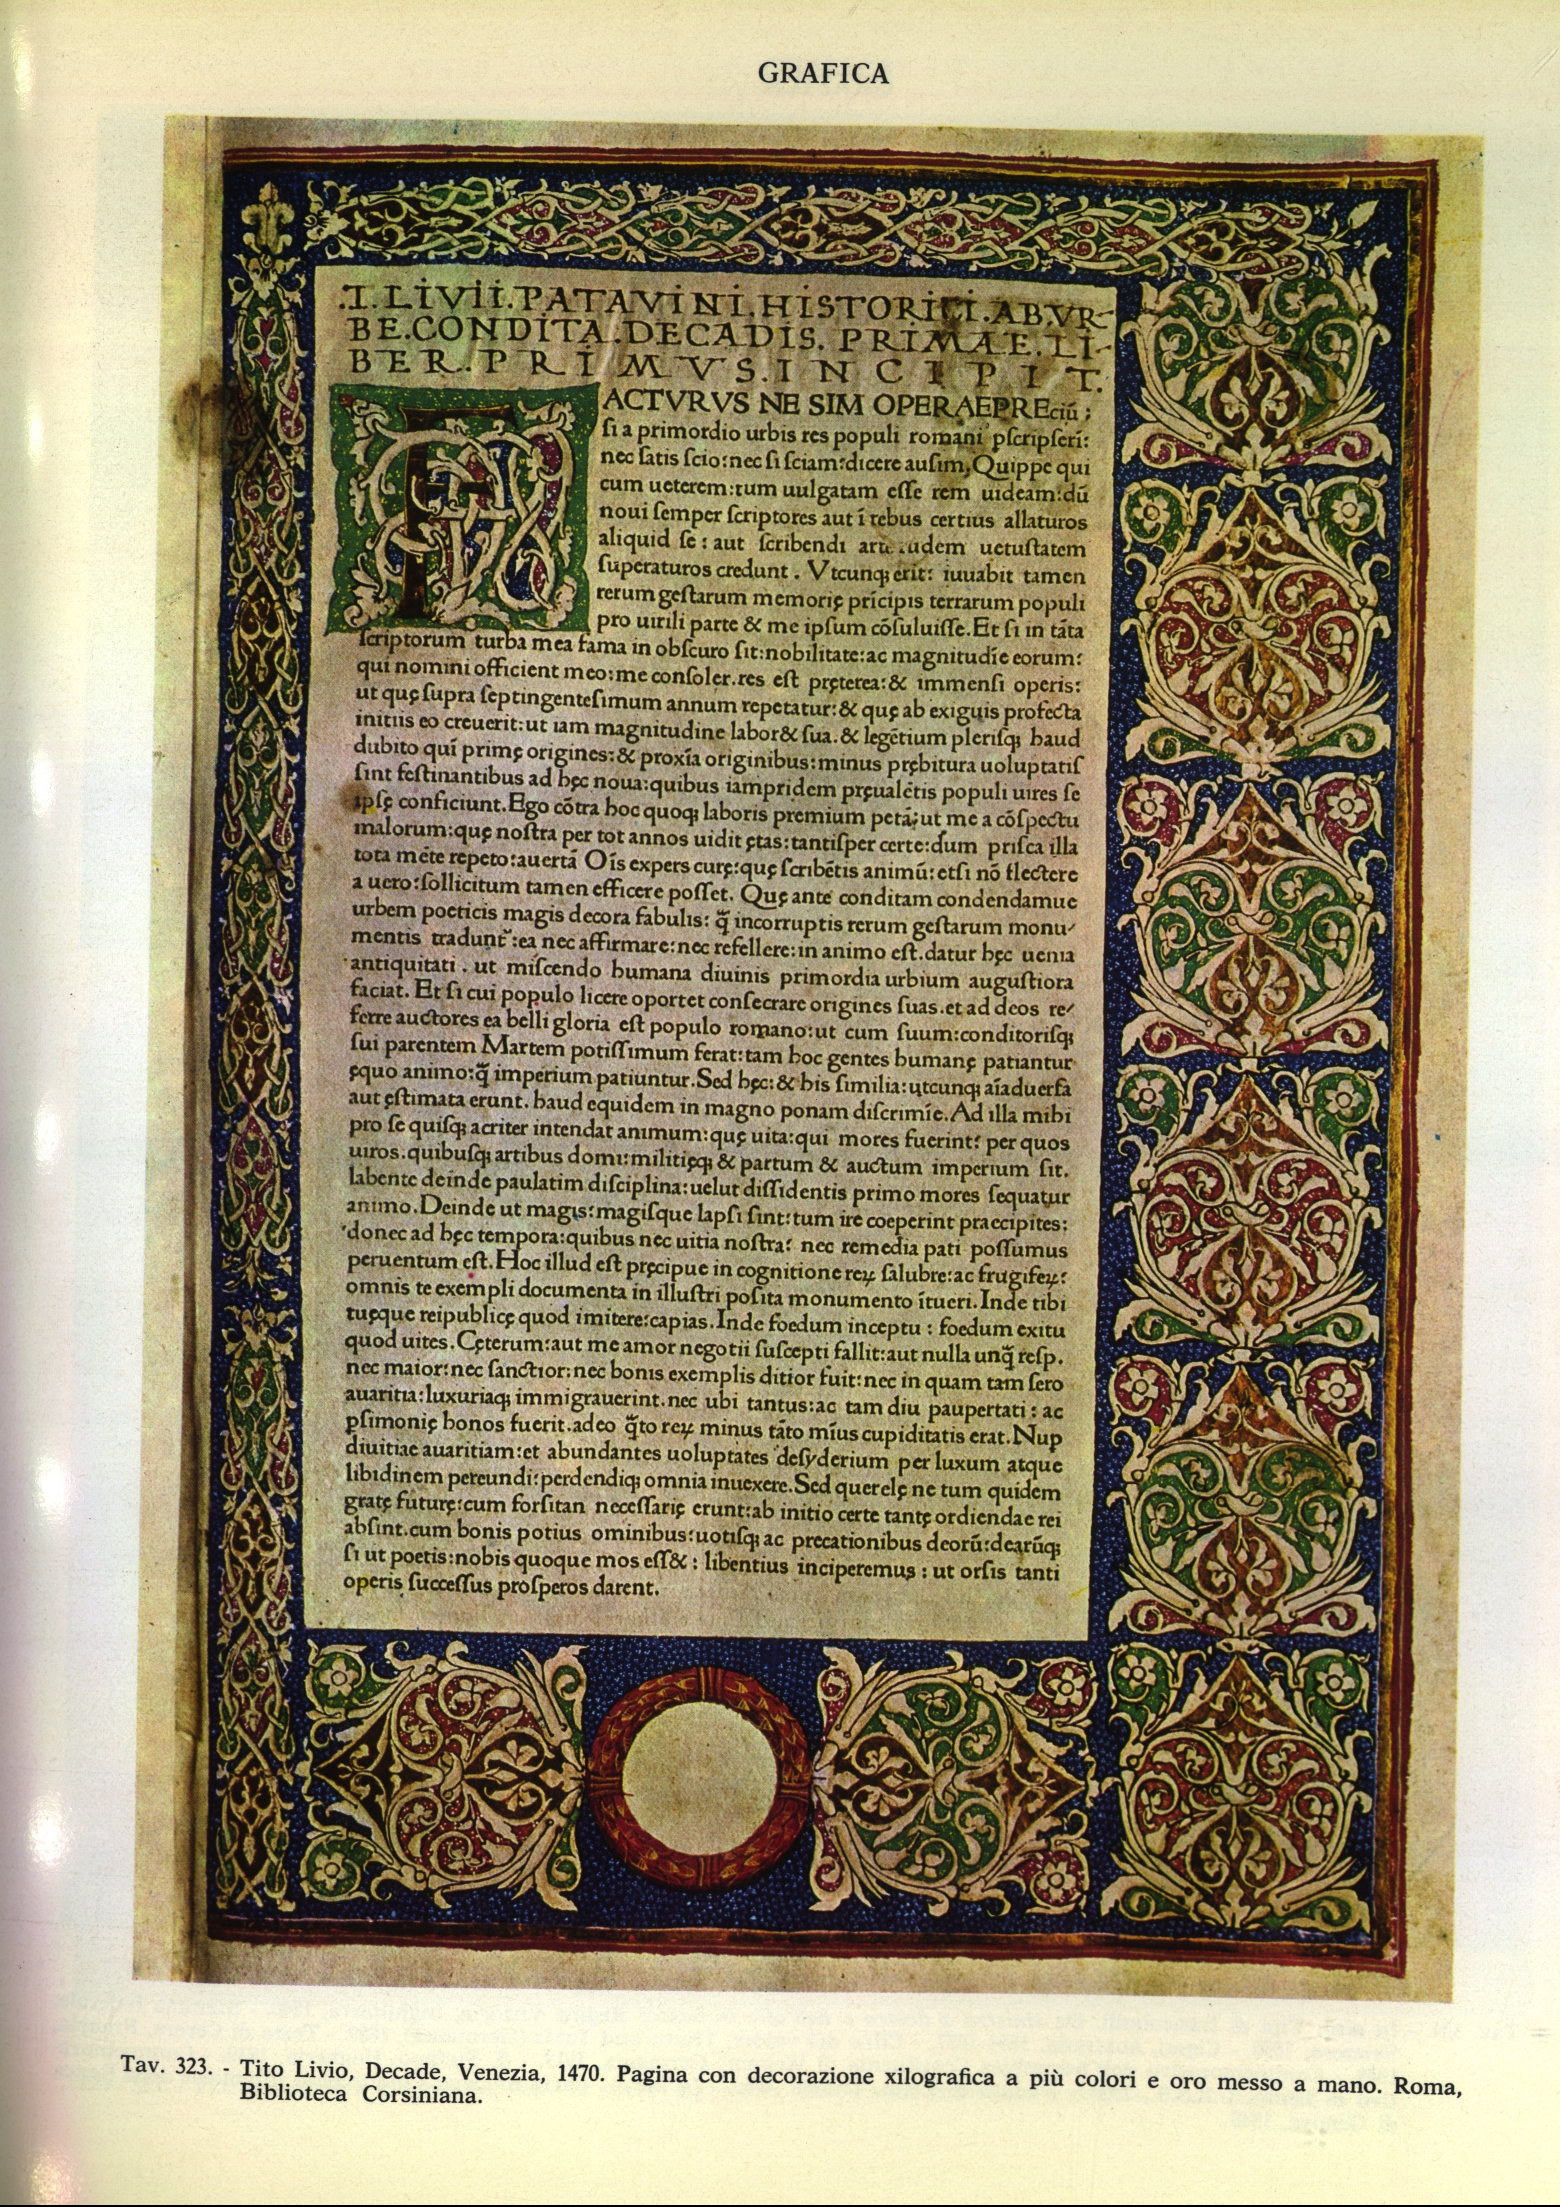 GRAFICA
.T.LIVII.PATAVINI.HISTORICI.AB.VR-
BE.CONDITA.DECADIS. PRIMAE.LI-
BER.PRIMVS.INCIPIT.
FACTVRVS NE SIM OPERAEPREciū:
ſi a primordio urbis res populi romani pſcripſerī:
nec ſatis ſcio:nec ſi ſciam:dicere auſim.Quippe qui
cum ueterem:tum uulgatam eſſe rem uideam:dū
noui ſemper ſcriptores aut ī rebus certius allaturos
aliquid ſe: aut ſcribendi uetuſtatem
ſuperaturos credunt. Vtcunqꝫ erit: iuuabit tamen
rerum geſtarum memorię prīcipis terrarum populi
pro uirili parte & me ipſum cōſuluiſſe.Et ſi in tāta
ſcriptorum turba mea fama in obſcuro ſit:nobilitate:ac magnitudīe eorum:
qui nomini officient meo:me conſoler.res eſt pręterea:& immenſi operis:
ut quę ſupra ſeptingenteſimum annum repetatur:& quę ab exiguis profecta
initiis eo creuerit:ut iam magnitudine labor& ſua.& legētium pleriſqꝫ haud
dubito quī primę origines:& proxīa originibus:minus prębitura uoluptatiſ
ſint feſtinantibus ad hęc noua:quibus iampridem pręualētis populi uires ſe
ipſę conficiunt.Ego cōtra hoc quoqꝫ laboris premium petā:ut me a cōſpectu
malorum:quę noſtra per tot annos uidit ętas:tantiſper certe:dum priſca illa
tota mēte repeto:auertā Oīs expers curę:quę ſcribētis animū:etſi nō flectere
a uero:ſollicitum tamen efficere poſſet. Quę ante conditam condendamue
urbem poeticis magis decora fabulis: q̄ incorruptis rerum geſtarum monu-
mentis tradunt᷑:ea nec affirmare:nec refellere:in animo eſt.datur hęc uenia
antiquitati. ut miſcendo humana diuinis primordia urbium auguſtiora
faciat. Et ſi cui populo licere oportet conſecrare origines ſuas.et ad deos re-
ferre auctores ea belli gloria eſt populo romano:ut cum ſuum:conditoriſqꝫ
ſui parentem Martem potiſſimum ferat:tam hoc gentes humanę patiantur
ęquo animo:q̄ imperium patiuntur.Sed hęc:& his ſimilia:utcunqꝫ aīaduerſa
aut ęſtimata erunt. haud equidem in magno ponam diſcrimīe.Ad illa mihi
pro ſe quiſqꝫ acriter intendat animum:quę uita:qui mores fuerint: per quos
uiros.quibuſqꝫ artibus domi:militięqꝫ & partum & auctum imperium ſit.
labente deinde paulatim diſciplina:uelut diſſidentis primo mores ſequatur
animo.Deinde ut magis:magiſque lapſi ſint:tum ire coeperint praecipites:
donec ad hęc tempora:quibus nec uitia noſtra: nec remedia pati poſſumus
peruentum eſt.Hoc illud eſt pręcipue in cognitione reꝝ ſalubre:ac frugifeꝝ:
omnis te exempli documenta in illuſtri poſita monumento ītueri.Inde tibi
tuęque reipublicę quod imitere:capias.Inde foedum inceptu: foedum exitu
quod uites.Cęterum:aut me amor negotii ſuſcepti fallit:aut nulla unq̄ reſp.
nec maior:nec ſanctior:nec bonis exemplis ditior fuit:nec in quam tam ſero
auaritia:luxuriaqꝫ immigrauerint.nec ubi tantus:ac tam diu paupertati: ac
ꝑſimonię honos fuerit.adeo q̄to reꝝ minus tāto mīus cupiditatis erat.Nup
diuitiae auaritiam:et abundantes uoluptates deſyderium per luxum atque
libidinem pereundi:perdendiqꝫ omnia inuexere.Sed querelę ne tum quidem
gratę futurę:cum forſitan neceſſarię erunt:ab initio certe tantę ordiendae rei
abſint.cum bonis potius ominibus:uotiſqꝫ ac precationibus deorū:dearūqꝫ
ſi ut poetis:nobis quoque mos eſſ&: libentius inciperemus: ut orſis tanti
operis ſucceſſus proſperos darent.
Tav. 323. - Tito Livio, Decade, Venezia, 1470. Pagina con decorazione xilografica a più colori e oro messo a mano. Roma,
Biblioteca Corsiniana.